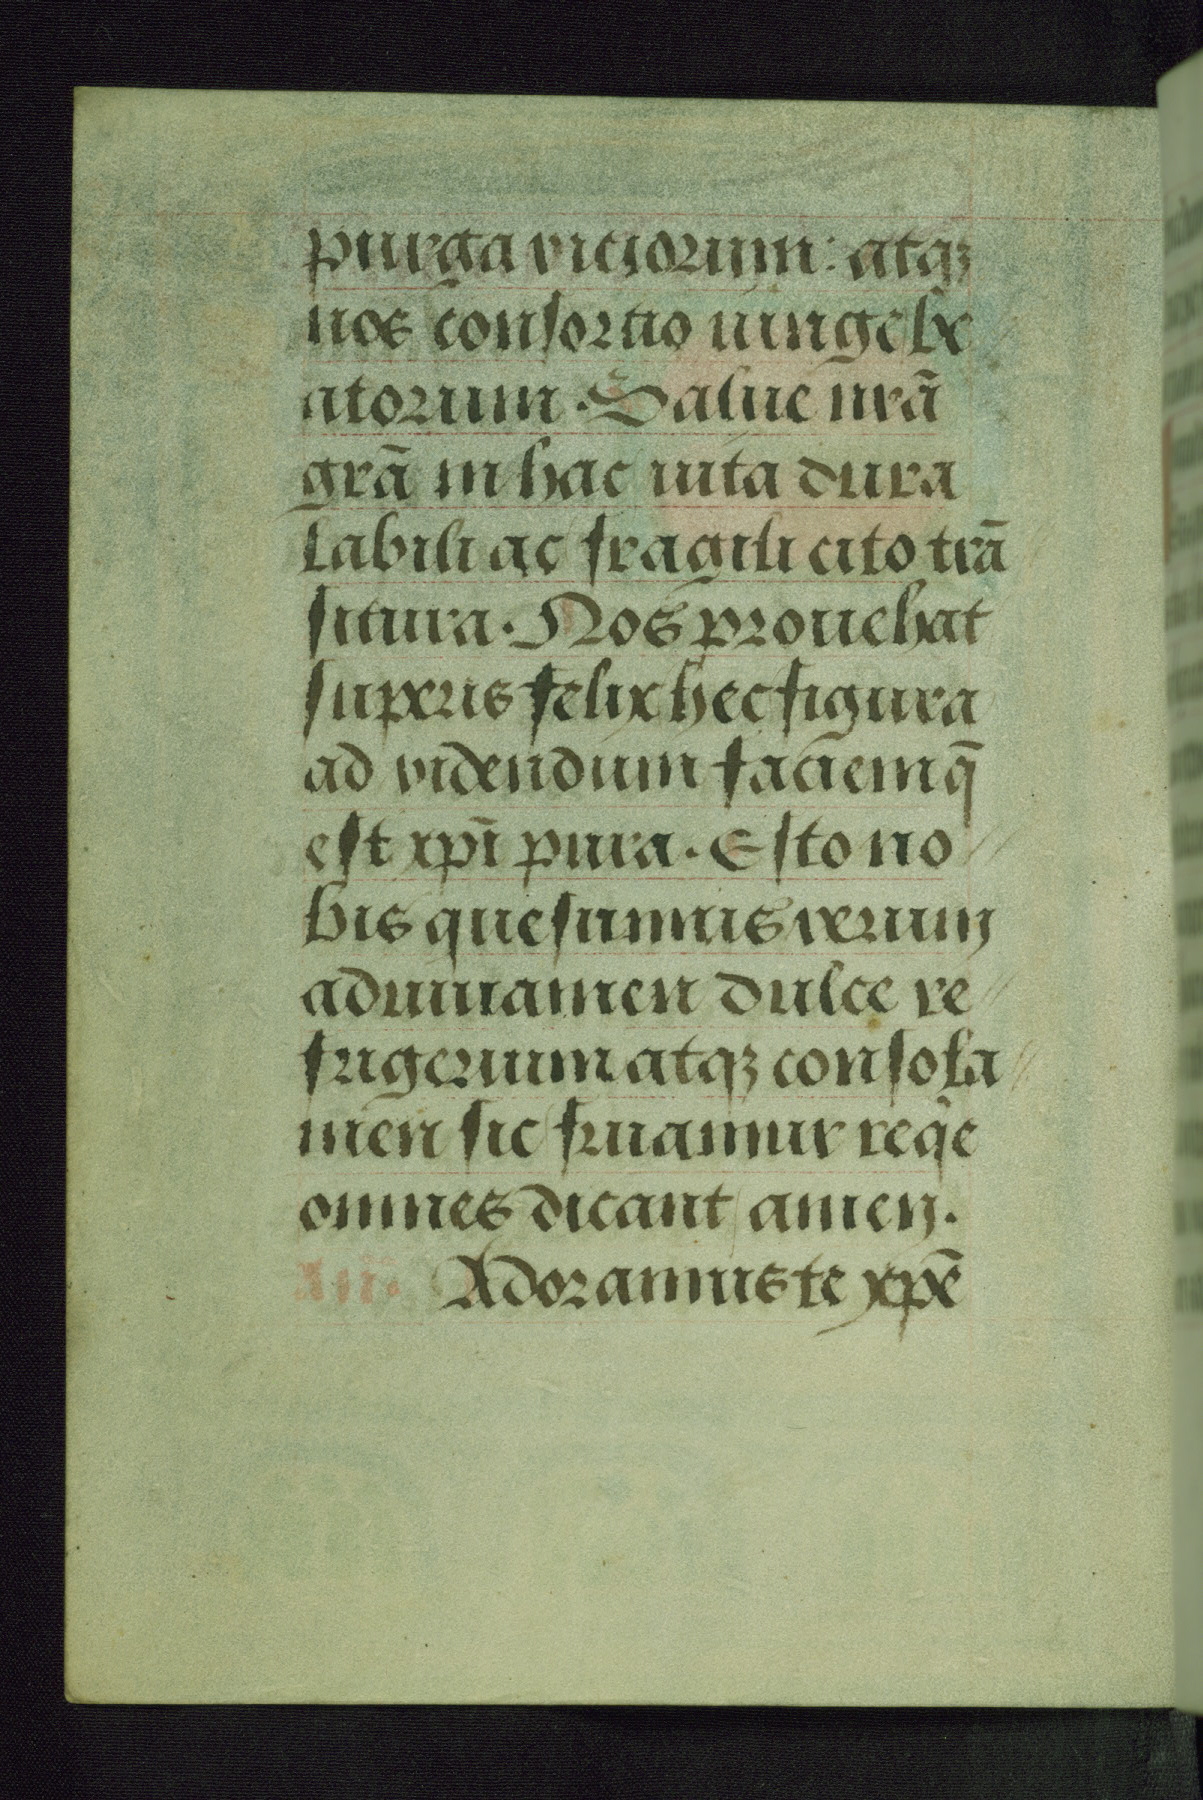 purga viciorum: atqꝫ
nos consortio iunge be
atorum. Salue nrã
grã in hac uita dura
labili ac fragili cito trã
situra. Nos prouehat
superis felix hec figura
ad videndum faciem q̃
est xpĩ pura. Esto no
bis quesumus verum
adiuuamen dulce re
frigerium atqꝫ consola
men sic fruamur reqͥe
omnes dicant amen.
Adoramus te xpẽ